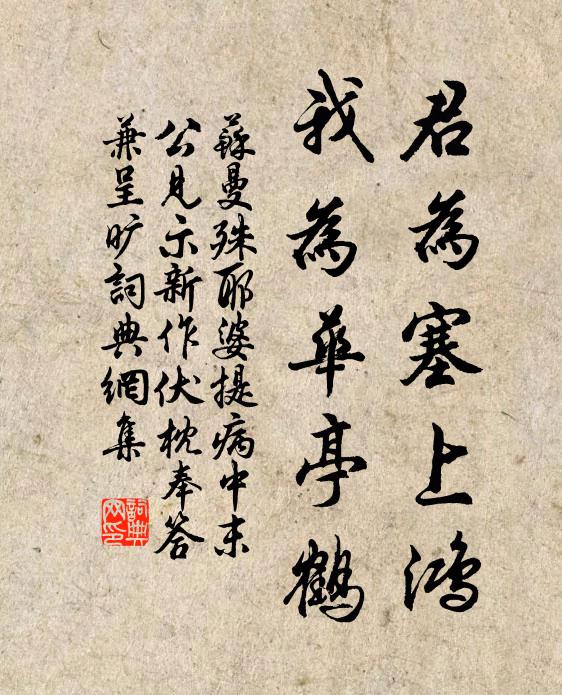 君為塞上鴻
我為華亭鶴
蘇曼殊耶婆提病中末
公見示新作伏枕奉答
兼呈旷詞典網集
詞典
网印